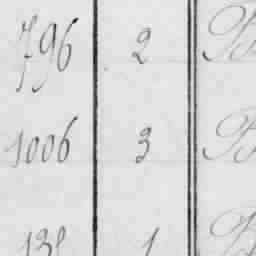 796 2 B
1006 3 B
138 1 B